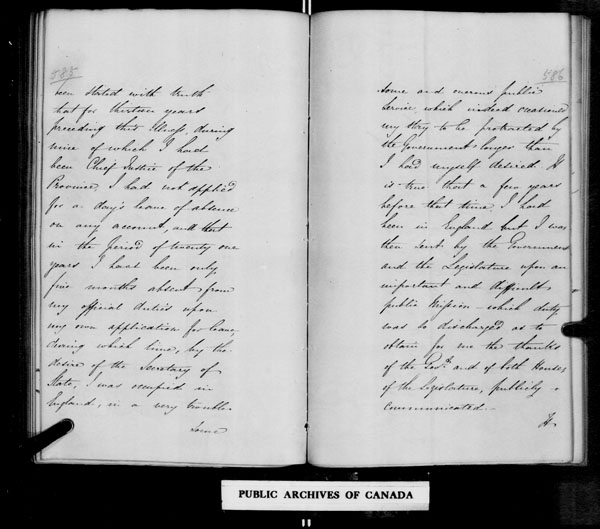 585
been stated with truth
that for thirteen years
preceding that Illness, during
nine of which I had
been Chief Justice of the
Province, I had not applied
for a day's leave of absence
on any account, and that
in the period of twenty one
years I had been only
five months absent from
my official duties upon
my own application for leave,
during which time, by the
desire of the Secretary of
State, I was occupied in
England, in a very trouble
some
586
some and onerous public
service which indeed occasioned
my stay to be protracted by
the Government longer than
I had myself desired. It
is true that a few years
before that time I had
been in England but I was
then sent by the Government
and the Legislature upon an
important and difficult
public Mission which duty
was so discharged as to
obtain for me the thanks
of the Gov.t and of both Houses
of the Legislature, publicly
communicated
PUBLIC ARCHIVES OF CANADA